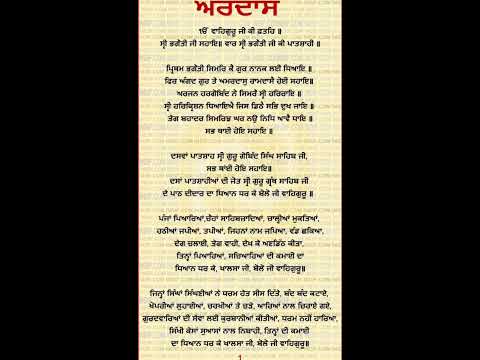 ਅਰਦਾਸ
ੴ ਵਾਹਿਗੁਰੂ ਜੀ ਕੀ ਫ਼ਤਹਿ ॥
ਸ੍ਰੀ ਭਗੌਤੀ ਜੀ ਸਹਾਇ॥ ਵਾਰ ਸ੍ਰੀ ਭਗੌਤੀ ਜੀ ਕੀ ਪਾਤਸ਼ਾਹੀ ॥
ਪ੍ਰਿਥਮ ਭਗੌਤੀ ਸਿਮਰਿ ਕੈ ਗੁਰ ਨਾਨਕ ਲਈ ਧਿਆਇ ॥
ਫਿਰ ਅੰਗਦ ਗੁਰ ਤੇ ਅਮਰਦਾਸੁ ਰਾਮਦਾਸੈ ਹੋਈ ਸਹਾਇ॥
ਅਰਜਨ ਹਰਗੋਬਿੰਦ ਨੋ ਸਿਮਰੌ ਸ੍ਰੀ ਹਰਿਰਾਇ ॥
ਸ੍ਰੀ ਹਰਿਕ੍ਰਿਸ਼ਨ ਧਿਆਇਐ ਜਿਸ ਡਿਠੈ ਸਭਿ ਦੁਖ ਜਾਇ ॥
ਤੇਗ ਬਹਾਦਰ ਸਿਮਰਿਐ ਘਰ ਨਉ ਨਿਧਿ ਆਵੈ ਧਾਇ ॥
ਸਭ ਥਾਈਂ ਹੋਇ ਸਹਾਇ ॥
ਦਸਵਾਂ ਪਾਤਸ਼ਾਹ ਸ੍ਰੀ ਗੁਰੂ ਗੋਬਿੰਦ ਸਿੰਘ ਸਾਹਿਬ ਜੀ,
ਸਭ ਥਾਂਈ ਹੋਇ ਸਹਾਇ॥
ਦਸਾਂ ਪਾਤਸ਼ਾਹੀਆਂ ਦੀ ਜੋਤ ਸ੍ਰੀ ਗੁਰੂ ਗ੍ਰੰਥ ਸਾਹਿਬ ਜੀ
ਦੇ ਪਾਠ ਦੀਦਾਰ ਦਾ ਧਿਆਨ ਧਰ ਕੇ ਬੋਲੋ ਜੀ ਵਾਹਿਗੁਰੂ ॥
ਪੰਜਾਂ ਪਿਆਰਿਆਂ,ਚੌਹਾਂ ਸਾਹਿਬਜ਼ਾਦਿਆਂ, ਚਾਲ੍ਹੀਆਂ ਮੁਕਤਿਆਂ,
ਹਠੀਆਂ ਜਪੀਆਂ, ਤਪੀਆਂ, ਜਿਹਨਾਂ ਨਾਮ ਜਪਿਆ, ਵੰਡ ਛਕਿਆ,
ਦੇਗ ਚਲਾਈ, ਤੇਗ ਵਾਹੀ, ਦੇਖ ਕੇ ਅਣਡਿੱਠ ਕੀਤਾ,
ਤਿਨ੍ਹਾਂ ਪਿਆਰਿਆਂ, ਸਚਿਆਰਿਆਂ ਦੀ ਕਮਾਈ ਦਾ
ਧਿਆਨ ਧਰ ਕੇ, ਖਾਲਸਾ ਜੀ, ਬੋਲੋ ਜੀ ਵਾਹਿਗੁਰੂ॥
ਜਿਨ੍ਹਾਂ ਸਿੰਘਾਂ ਸਿੰਘਣੀਆਂ ਨੇ ਧਰਮ ਹੇਤ ਸੀਸ ਦਿੱਤੇ, ਬੰਦ ਬੰਦ ਕਟਾਏ,
ਖੋਪਰੀਆਂ ਲੁਹਾਈਆਂ, ਚਰਖੀਆਂ ਤੇ ਚੜੇ, ਆਰਿਆਂ ਨਾਲ ਚਿਰਾਏ ਗਏ,
ਗੁਰਦਵਾਰਿਆਂ ਦੀ ਸੇਵਾ ਲਈ ਕੁਰਬਾਨੀਆਂ ਕੀਤੀਆਂ, ਧਰਮ ਨਹੀਂ ਹਾਰਿਆ,
ਸਿੱਖੀ ਕੇਸਾਂ ਸੁਆਸਾਂ ਨਾਲ ਨਿਬਾਹੀ, ਤਿਨ੍ਹਾਂ ਦੀ ਕਮਾਈ
ਦਾ ਧਿਆਨ ਧਰ ਕੇ ਖਾਲਸਾ, ਜੀ ਬੋਲੋ ਜੀ ਵਾਹਿਗੁਰੂ॥
1